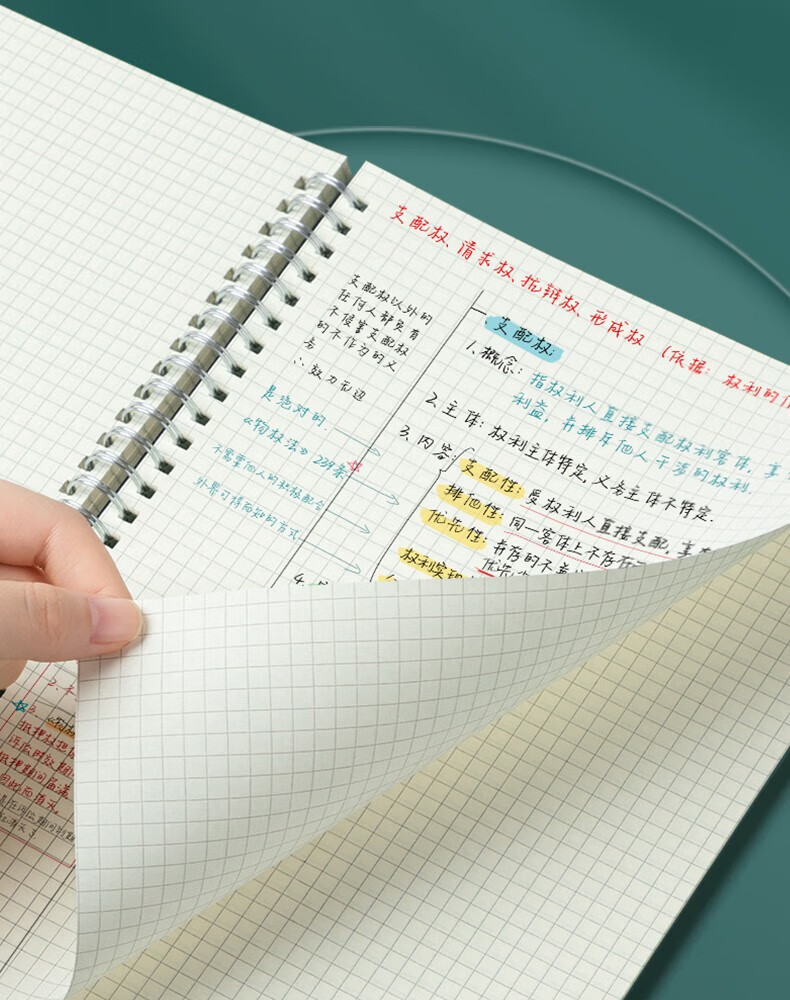 支配权、请求权、抗辩权、形成权 (依据: 权利的作
支配权以外的
任何人都负有
不侵害支配权
的不作为的义
务
∴效力无边
是绝对的.
《物权法》239条
不需要他人的积极配合
外界可得而知的方式.
一、支配权:
1、概念: 指权利人直接支配权利客体, 享
利益, 并排斥他人干涉的权利.
2、主体: 权利主体特定, 义务主体不特定.
3、内容:
支配性: 受权利人直接支配, 享有
排他性: 同一客体上不存在
优先性: 并存的不
优先
权利实现
4、
2、
抵押权
诉讼时效期
抵押期间届满